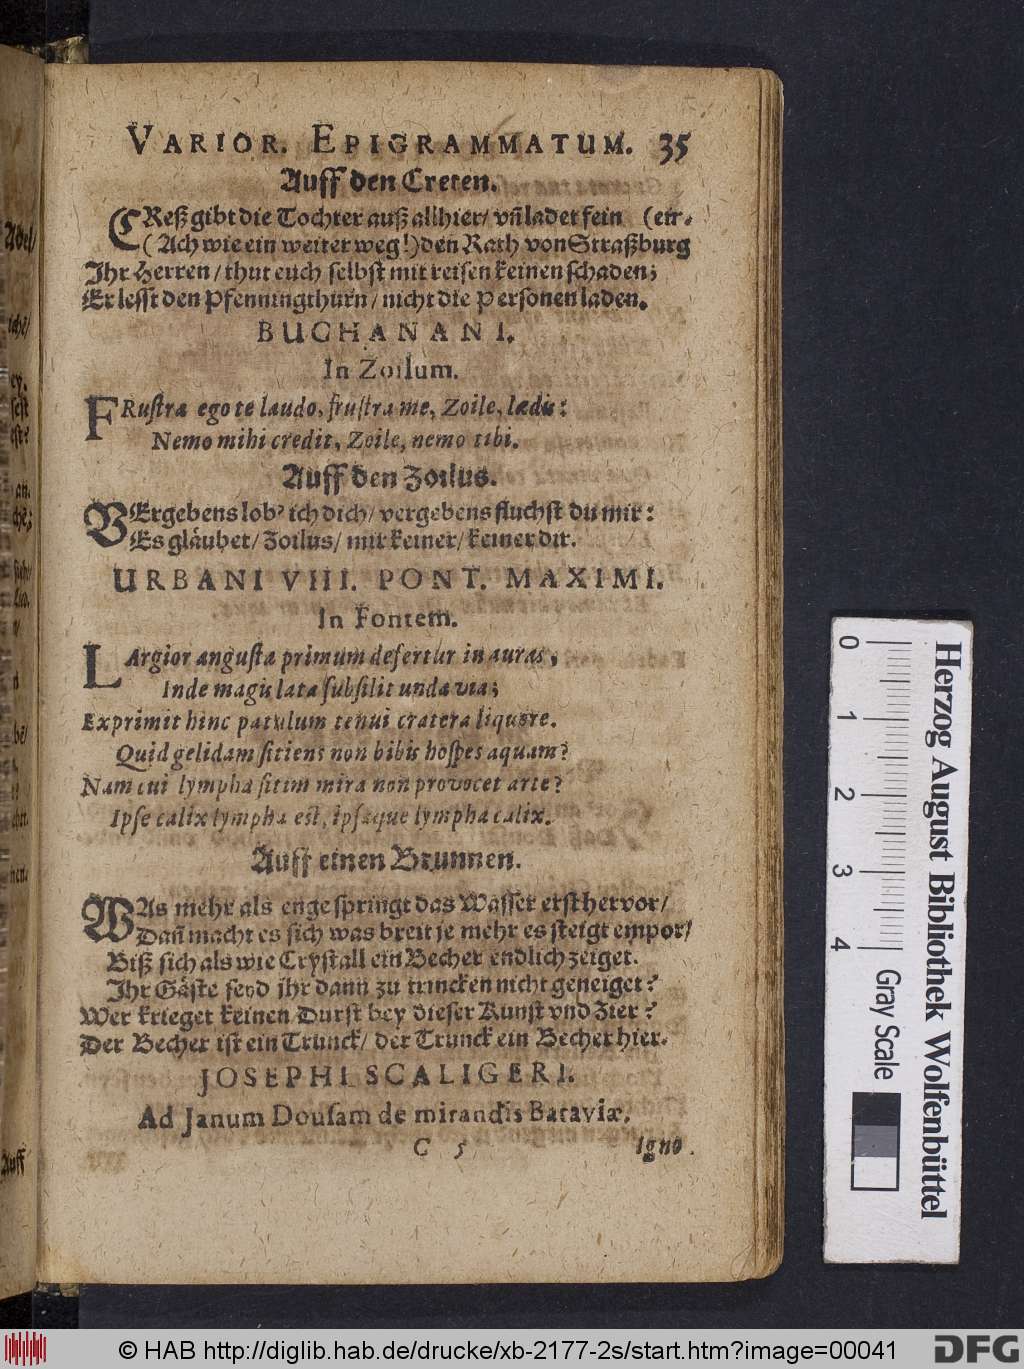 VARIOR. EPIGRAMMATUM. 35
Auff den Creten.
CReß gibt die Tochter auß allhier/ vñ ladet fein (ein-
(Ach wie ein weiter weg!) den Rath von Straßburg
Ihr Herren/ thut euch selbst mit reisen keinen schaden;
Er lesst den Pfenningthurn/ nicht die Personen laden.
BUCHANANI.
In Zoilum.
FRustra ego te laudo, frustra me, Zoile, lædis:
Nemo mihi credit, Zoile, nemo tibi.
Auff den Zoilus.
VErgebens lob' ich dich/ vergebens fluchst du mir:
Es gläubet/ Zoilus/ mir keiner/ keiner dir.
URBANI VIII. PONT. MAXIMI.
In Fontem.
LArgior angusta primum defertur in auras,
Inde magis lata subsilit unda via;
Exprimit hinc patulum tenui cratera liquore.
Quid gelidam sitiens non bibis hospes aquam?
Nam cui lympha sitim mira non provocet arte?
Ipse calix lympha est, ipsaque lympha calix.
Auff einen Brunnen.
WAs mehr als enge springt das Wasser erst hervor/
Dañ macht es sich was breit je mehr es steigt empor/
Biß sich als wie Crystall ein Becher endlich zeiget.
Ihr Gäste seyd ihr dann zu trincken nicht geneiget?
Wer krieget keinen Durst bey dieser Kunst vnd Zier?
Der Becher ist ein Trunck/ der Trunck ein Becher hier.
JOSEPHI SCALIGERI.
Ad Janum Dousam de mirandis Bataviæ.
C 5 Igno
Adel/
iche/
ey.
Auff
0 1 2 3 4 Gray Scale
Herzog August Bibliothek Wolfenbüttel
© HAB http://diglib.hab.de/drucke/xb-2177-2s/start.htm?image=00041
DFG